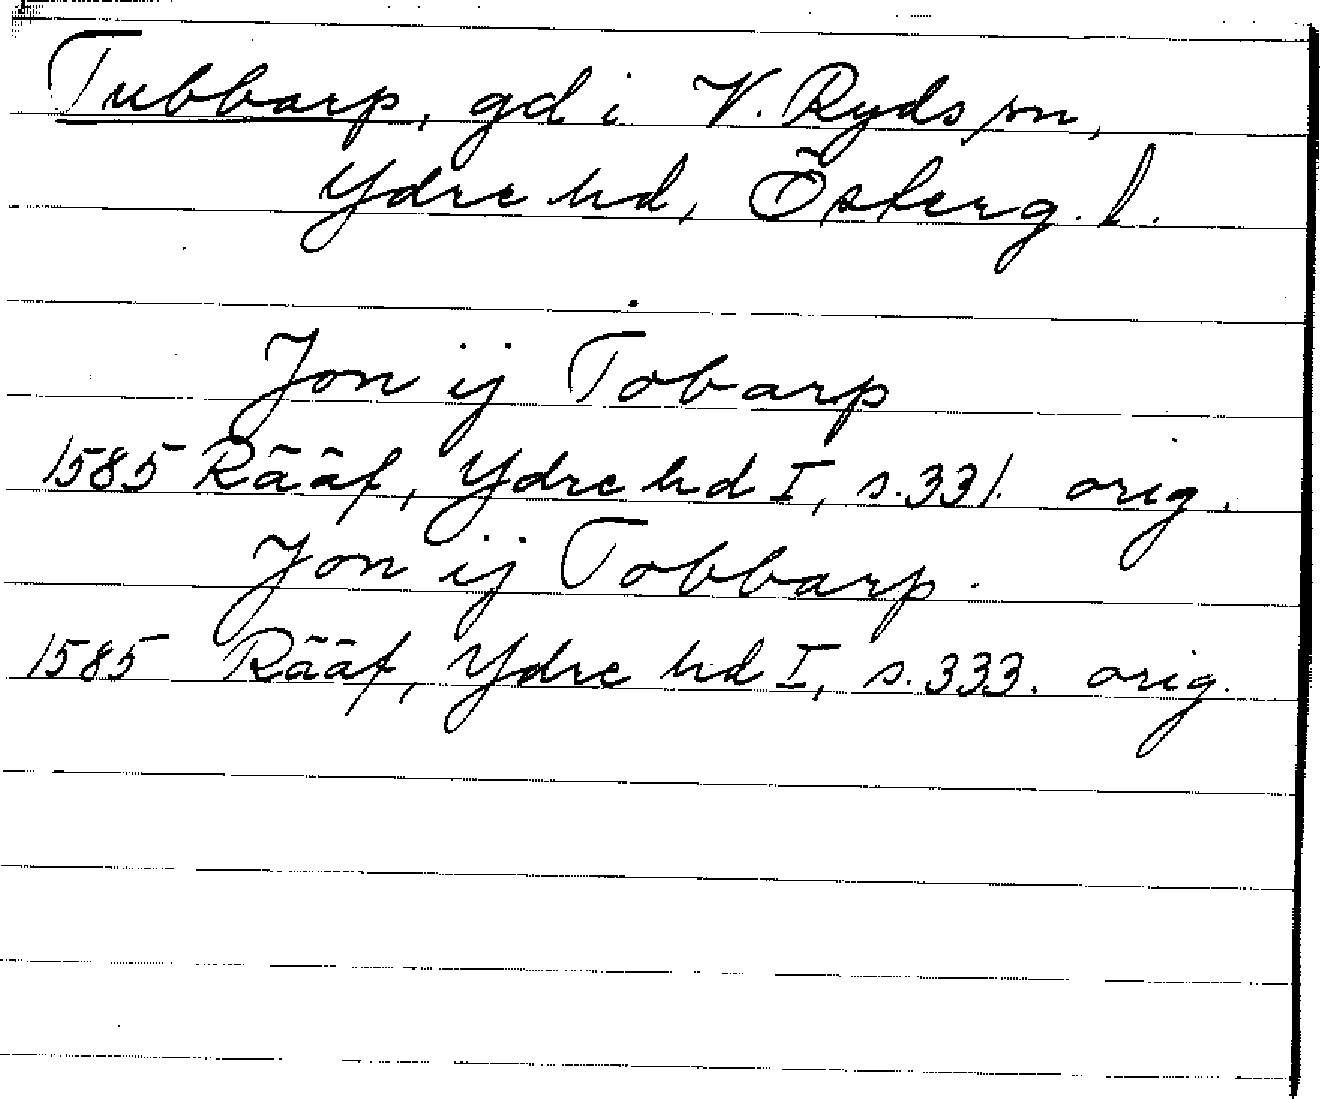 Tubbarp, gd i V. Ryds sn,
Ydre hd, Österg. l.
Jon ij Tobarp
1585 Rääf, Ydre hd I, s. 331. orig.
Jon ij Tobbarp.
1585 Rääf, Ydre hd I, s. 333. orig.